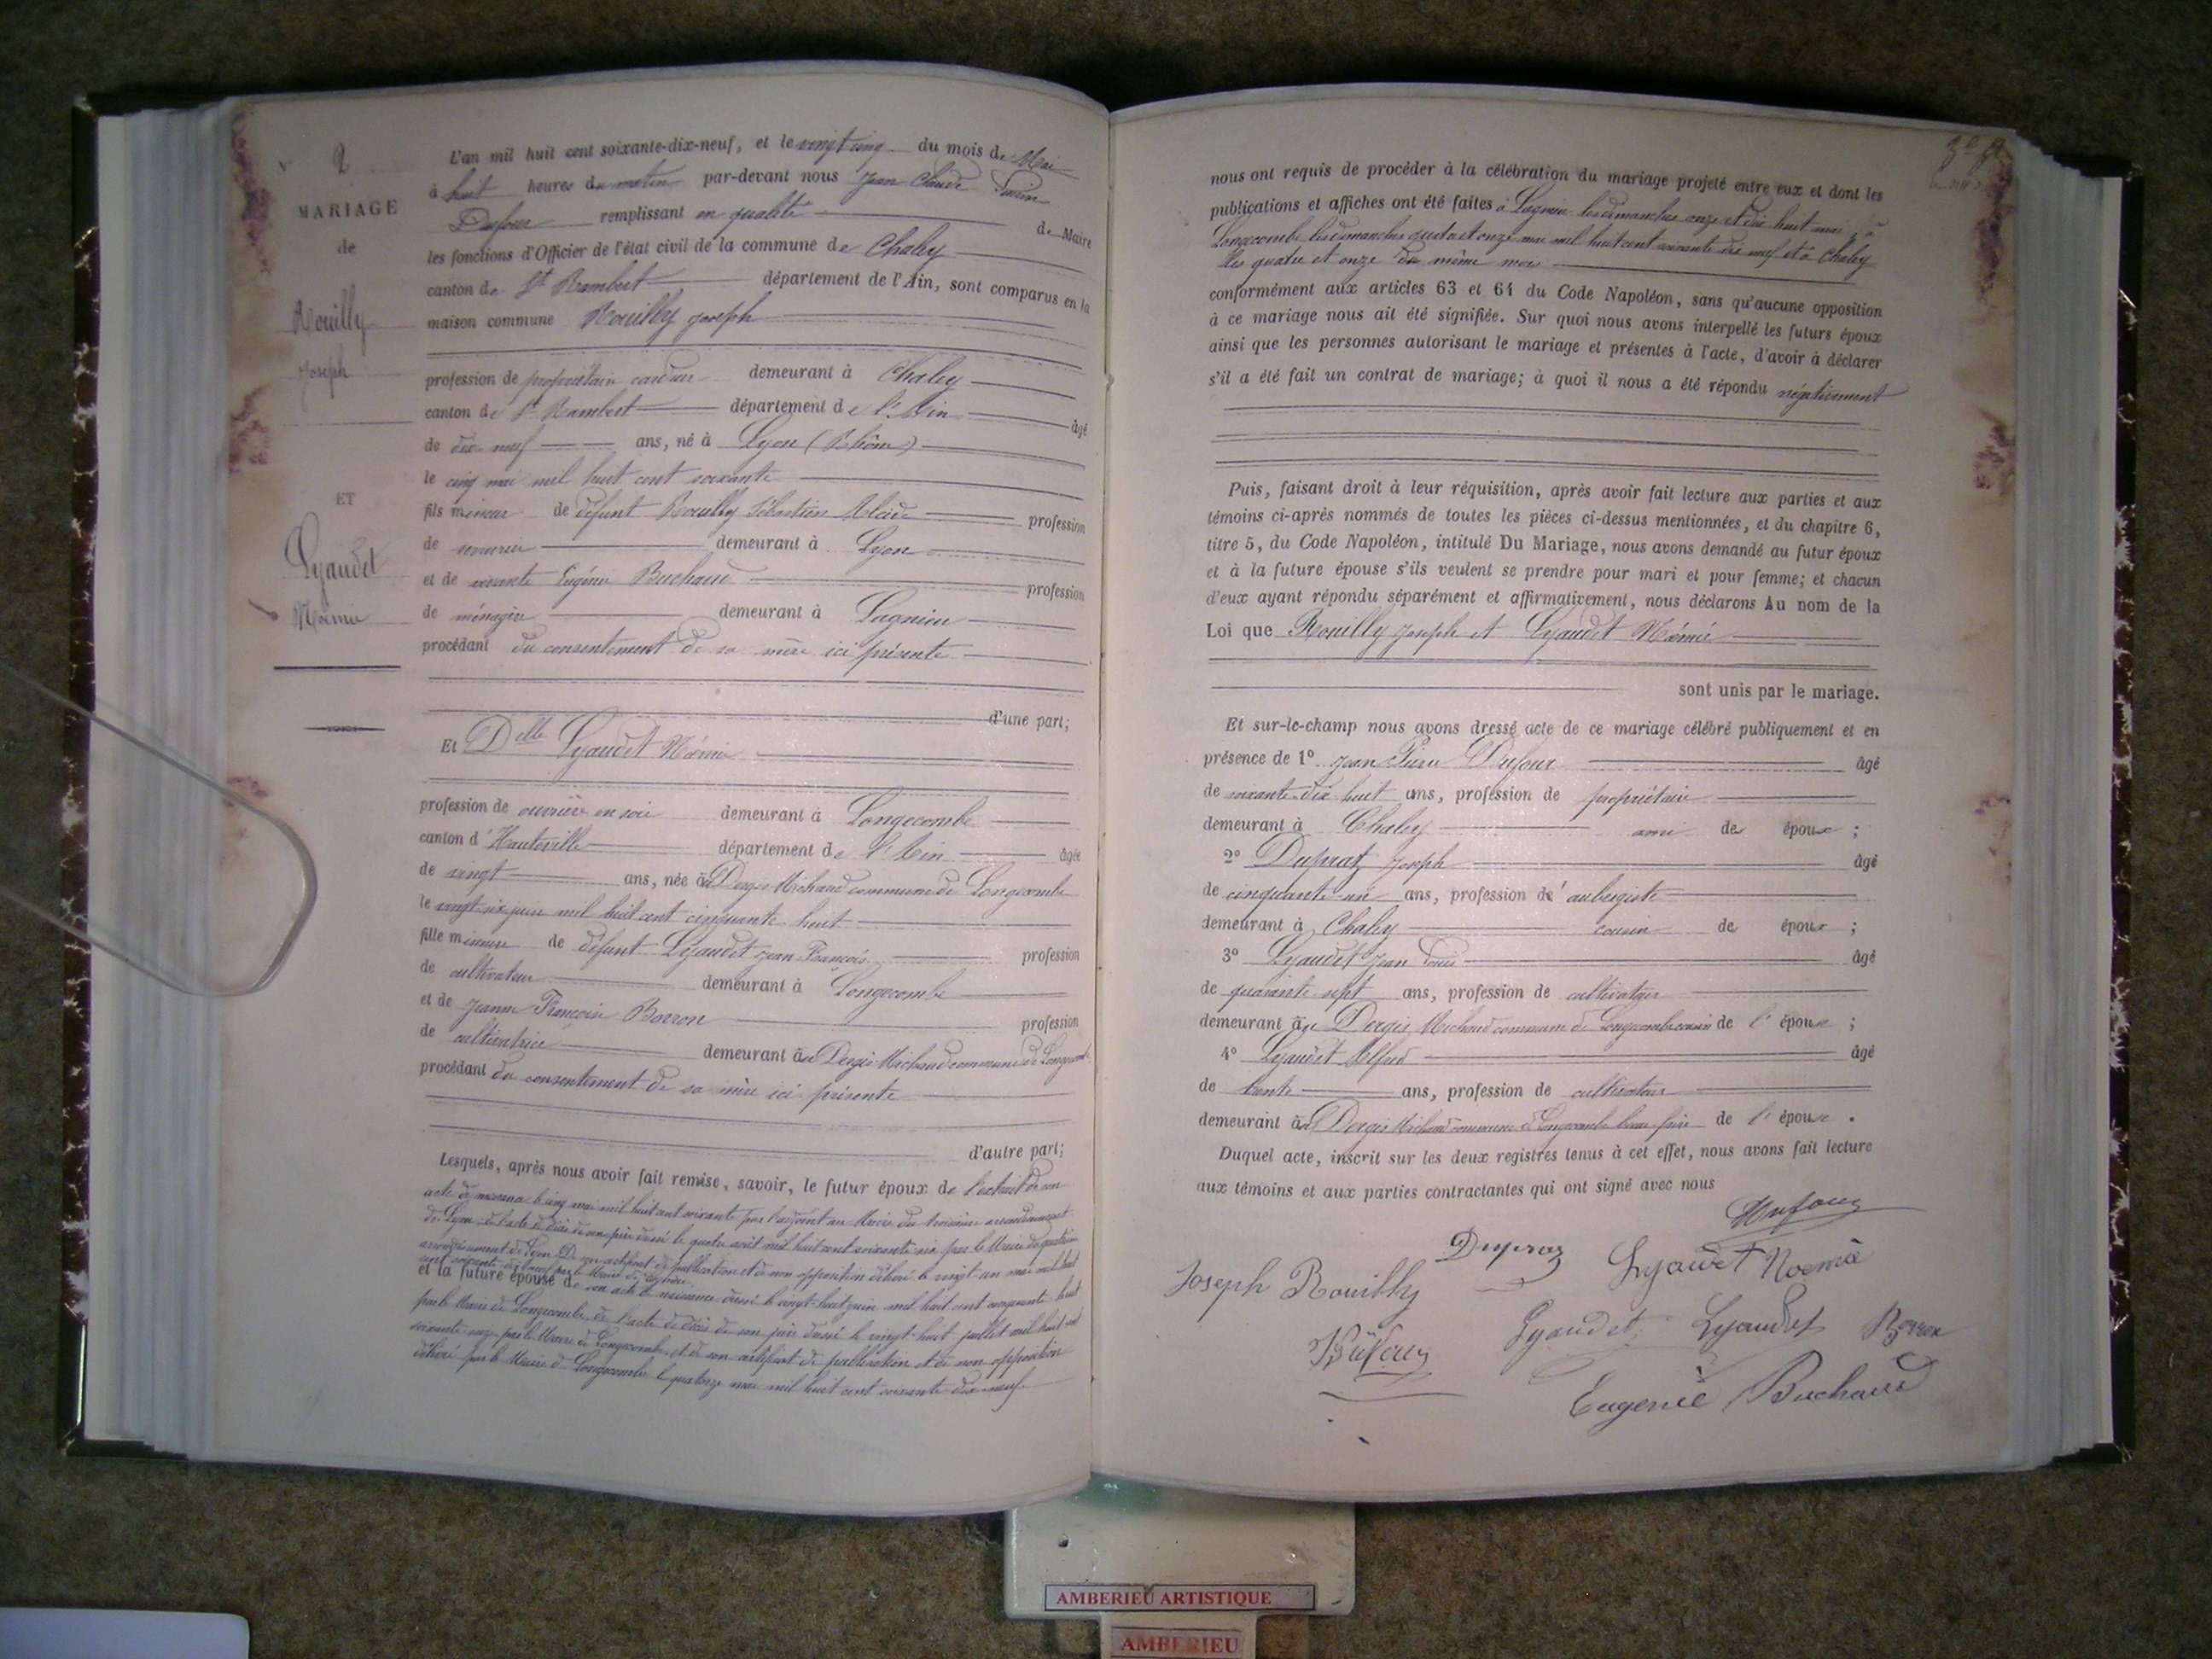 2
MARIAGE
de
Rouilly
Joseph
ET
Lyaudet
Noémie
L'an mil huit cent soixante-dix-neuf, et le vingt cinq du mois de Mai
à huit heures du matin par-devant nous Jean Claude
Dufour remplissant en qualité de Maire
les fonctions d'Officier de l'état civil de la commune de Chaley
canton de St Rambert département de l'Ain, sont comparus en la
maison commune Rouilly Joseph
profession de propriétaire demeurant à Chaley
canton de St Rambert département de l'Ain âgé
de dix neuf ans, né à Lyon (Rhône)
le cinq mai mil huit cent soixante
fils mineur de défunt Rouilly Sébastien profession
de demeurant à Lyon
et de vivante Eugénie Buchaud profession
de ménagère demeurant à Lagnieu
procédant du consentement de sa mère ici présente
d'une part;
Et Delle Lyaudet Noémie
profession de ouvrière en soie demeurant à Longecombe
canton d'Hauteville département de l'Ain âgée
de vingt ans, née à Dergis Michaud commune de Longecombe
le vingt six juin mil huit cent cinquante huit
fille mineure de défunt Lyaudet Jean François profession
de cultivateur demeurant à Longecombe
et de Jeanne Françoise Borron profession
de cultivatrice demeurant à Dergis Michaud commune de Longecombe
procédant du consentement de sa mère ici présente
d'autre part;
Lesquels, après nous avoir fait remise, savoir, le futur époux de l'extrait de son
acte de naissance le cinq mai mil huit cent soixante par l'adjoint au Maire du troisième arrondissement
de Lyon, de l'acte de décès de son père dressé le quatre août mil huit cent soixante six par le Maire du quatrième
arrondissement de Lyon. De son certificat de publication et de non opposition délivré le vingt-un mai mil huit
cent soixante dix neuf par le Maire de
et la future épouse de son acte de naissance dressé le vingt-huit juin mil huit cent cinquante huit
par le Maire de Longecombe, de l'acte de décès de son père dressé le vingt-huit juillet mil huit cent
soixante par le Maire de Longecombe et de son certificat de publication et de non opposition
délivré par le Maire de Longecombe le quatorze mai mil huit cent soixante dix-neuf
nous ont requis de procéder à la célébration du mariage projeté entre eux et dont les
publications et affiches ont été faites à Lagnieu les dimanches onze et dix huit mai, à
Longecombe les dimanches quatre et onze mai mil huit cent soixante dix neuf et à Chaley
les quatre et onze du même mois
conformément aux articles 63 et 64 du Code Napoléon, sans qu'aucune opposition
à ce mariage nous ait été signifiée. Sur quoi nous avons interpellé les futurs époux
ainsi que les personnes autorisant le mariage et présentes à l'acte, d'avoir à déclarer
s'il a été fait un contrat de mariage; à quoi il nous a été répondu négativement
Puis, faisant droit à leur réquisition, après avoir fait lecture aux parties et aux
témoins ci-après nommés de toutes les pièces ci-dessus mentionnées, et du chapitre 6,
titre 5, du Code Napoléon, intitulé Du Mariage, nous avons demandé au futur époux
et à la future épouse s'ils veulent se prendre pour mari et pour femme; et chacun
d'eux ayant répondu séparément et affirmativement, nous déclarons Au nom de la
Loi que Rouilly Joseph et Lyaudet Noémie
sont unis par le mariage.
Et sur-le-champ nous avons dressé acte de ce mariage célébré publiquement et en
présence de 1° Jean Pierre Dufour âgé
de soixante-dix huit ans, profession de propriétaire
demeurant à Chaley ami de époux ;
2° Dupraz Joseph âgé
de cinquante-un ans, profession d'aubergiste
demeurant à Chaley cousin de époux ;
3° Lyaudet Jean Louis âgé
de quarante sept ans, profession de cultivateur
demeurant à Dergis Michaud commune de Longecombe cousin de l'épouse ;
4° Lyaudet Alfred âgé
de trente ans, profession de cultivateur
demeurant à Dergis Michaud commune de Longecombe beau-frère de l'épouse .
Duquel acte, inscrit sur les deux registres tenus à cet effet, nous avons fait lecture
aux témoins et aux parties contractantes qui ont signé avec nous
Dufour
Dupraz Lyaudet Noémie
Joseph Rouilly
Lyaudet Lyaudet Borron
Dufour
Eugenie Buchaud
AMBERIEU ARTISTIQUE
AMBERIEU